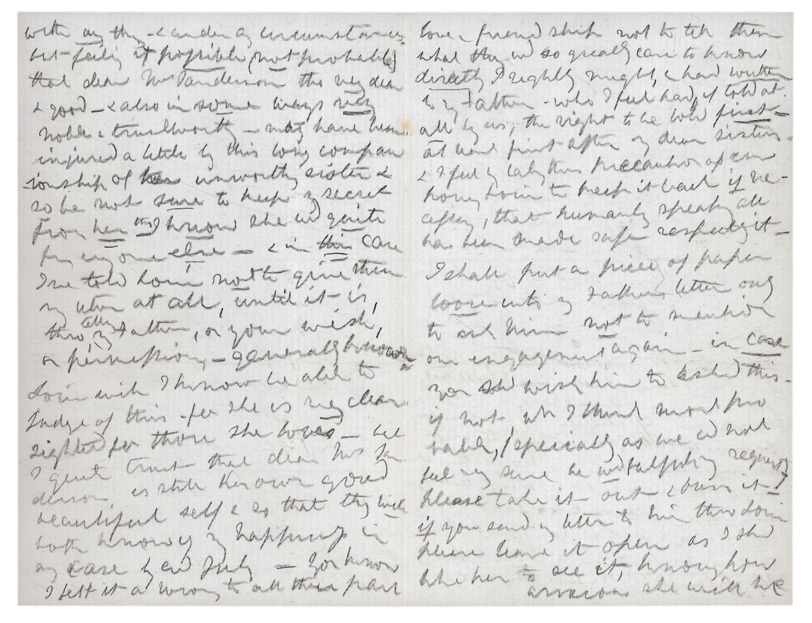 with any thy - & under any circumstances
but - feeling it possible (not probable)
that dear Mrs Sanderson tho' very dear
& good - & also in some ways very
noble & trustworthy - may have been
injured a little by this long compan
ionship of her unworthy sister &
so be not sure to keep my secret
from her tho' I know she wd quite
for any one else - & in this case
I've told Louie not to give them
my letter at all, until it is,
thro' my Father, or your wish,
or permission, - generally known
Louie will I know be able to
judge of this - for she is very clear
sighted for those she loves - but
I quite trust that dear Mrs San
derson is still her own good
beautiful self & so that they will
both know of my happiness in
any case by end July - You know
I felt it a wrong to all their past
love & friendship not to tell them
what they wd so greatly care to know
directly I rightly might, & had written
to my Father - who I feel had, if told at
all by us, the right to be told first -
at least first after my dear sisters -
& I feel by taking this precaution of em
powering Louie to keep it back if ne-
cessary, that humanly speaking all
has been made safe respecting it -
I shall put a piece of paper
loose into my Father's letter only
to ask him not to mention
our engagement again - in case
you shd wish him to be asked this -
if not wh I think most pro
bable, especially as we cd not
feel very sure he wd fulfil my request,
Please take it out & burn it -
if you send my letter to him thro' Louie
please leave it open as I shd
like her to see it, knowing how
anxious she will be